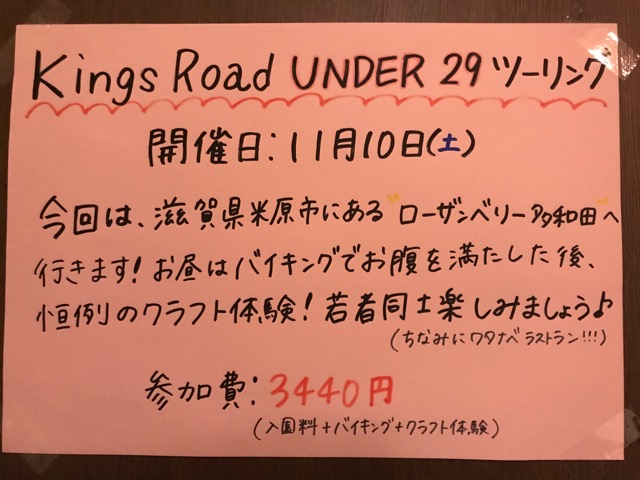 Kings Road UNDER 29 ツーリング
開催日:11月10日(土)
今回は、滋賀県米原市にある"ローザンベリー多和田"へ
行きます!お昼はバイキングでお腹を満たした後、
恒例のクラフト体験!若者同士楽しみましょう♪
(ちなみにワタナベラストラン!!!)
参加費:3440円
(入園料+バイキング+クラフト体験)